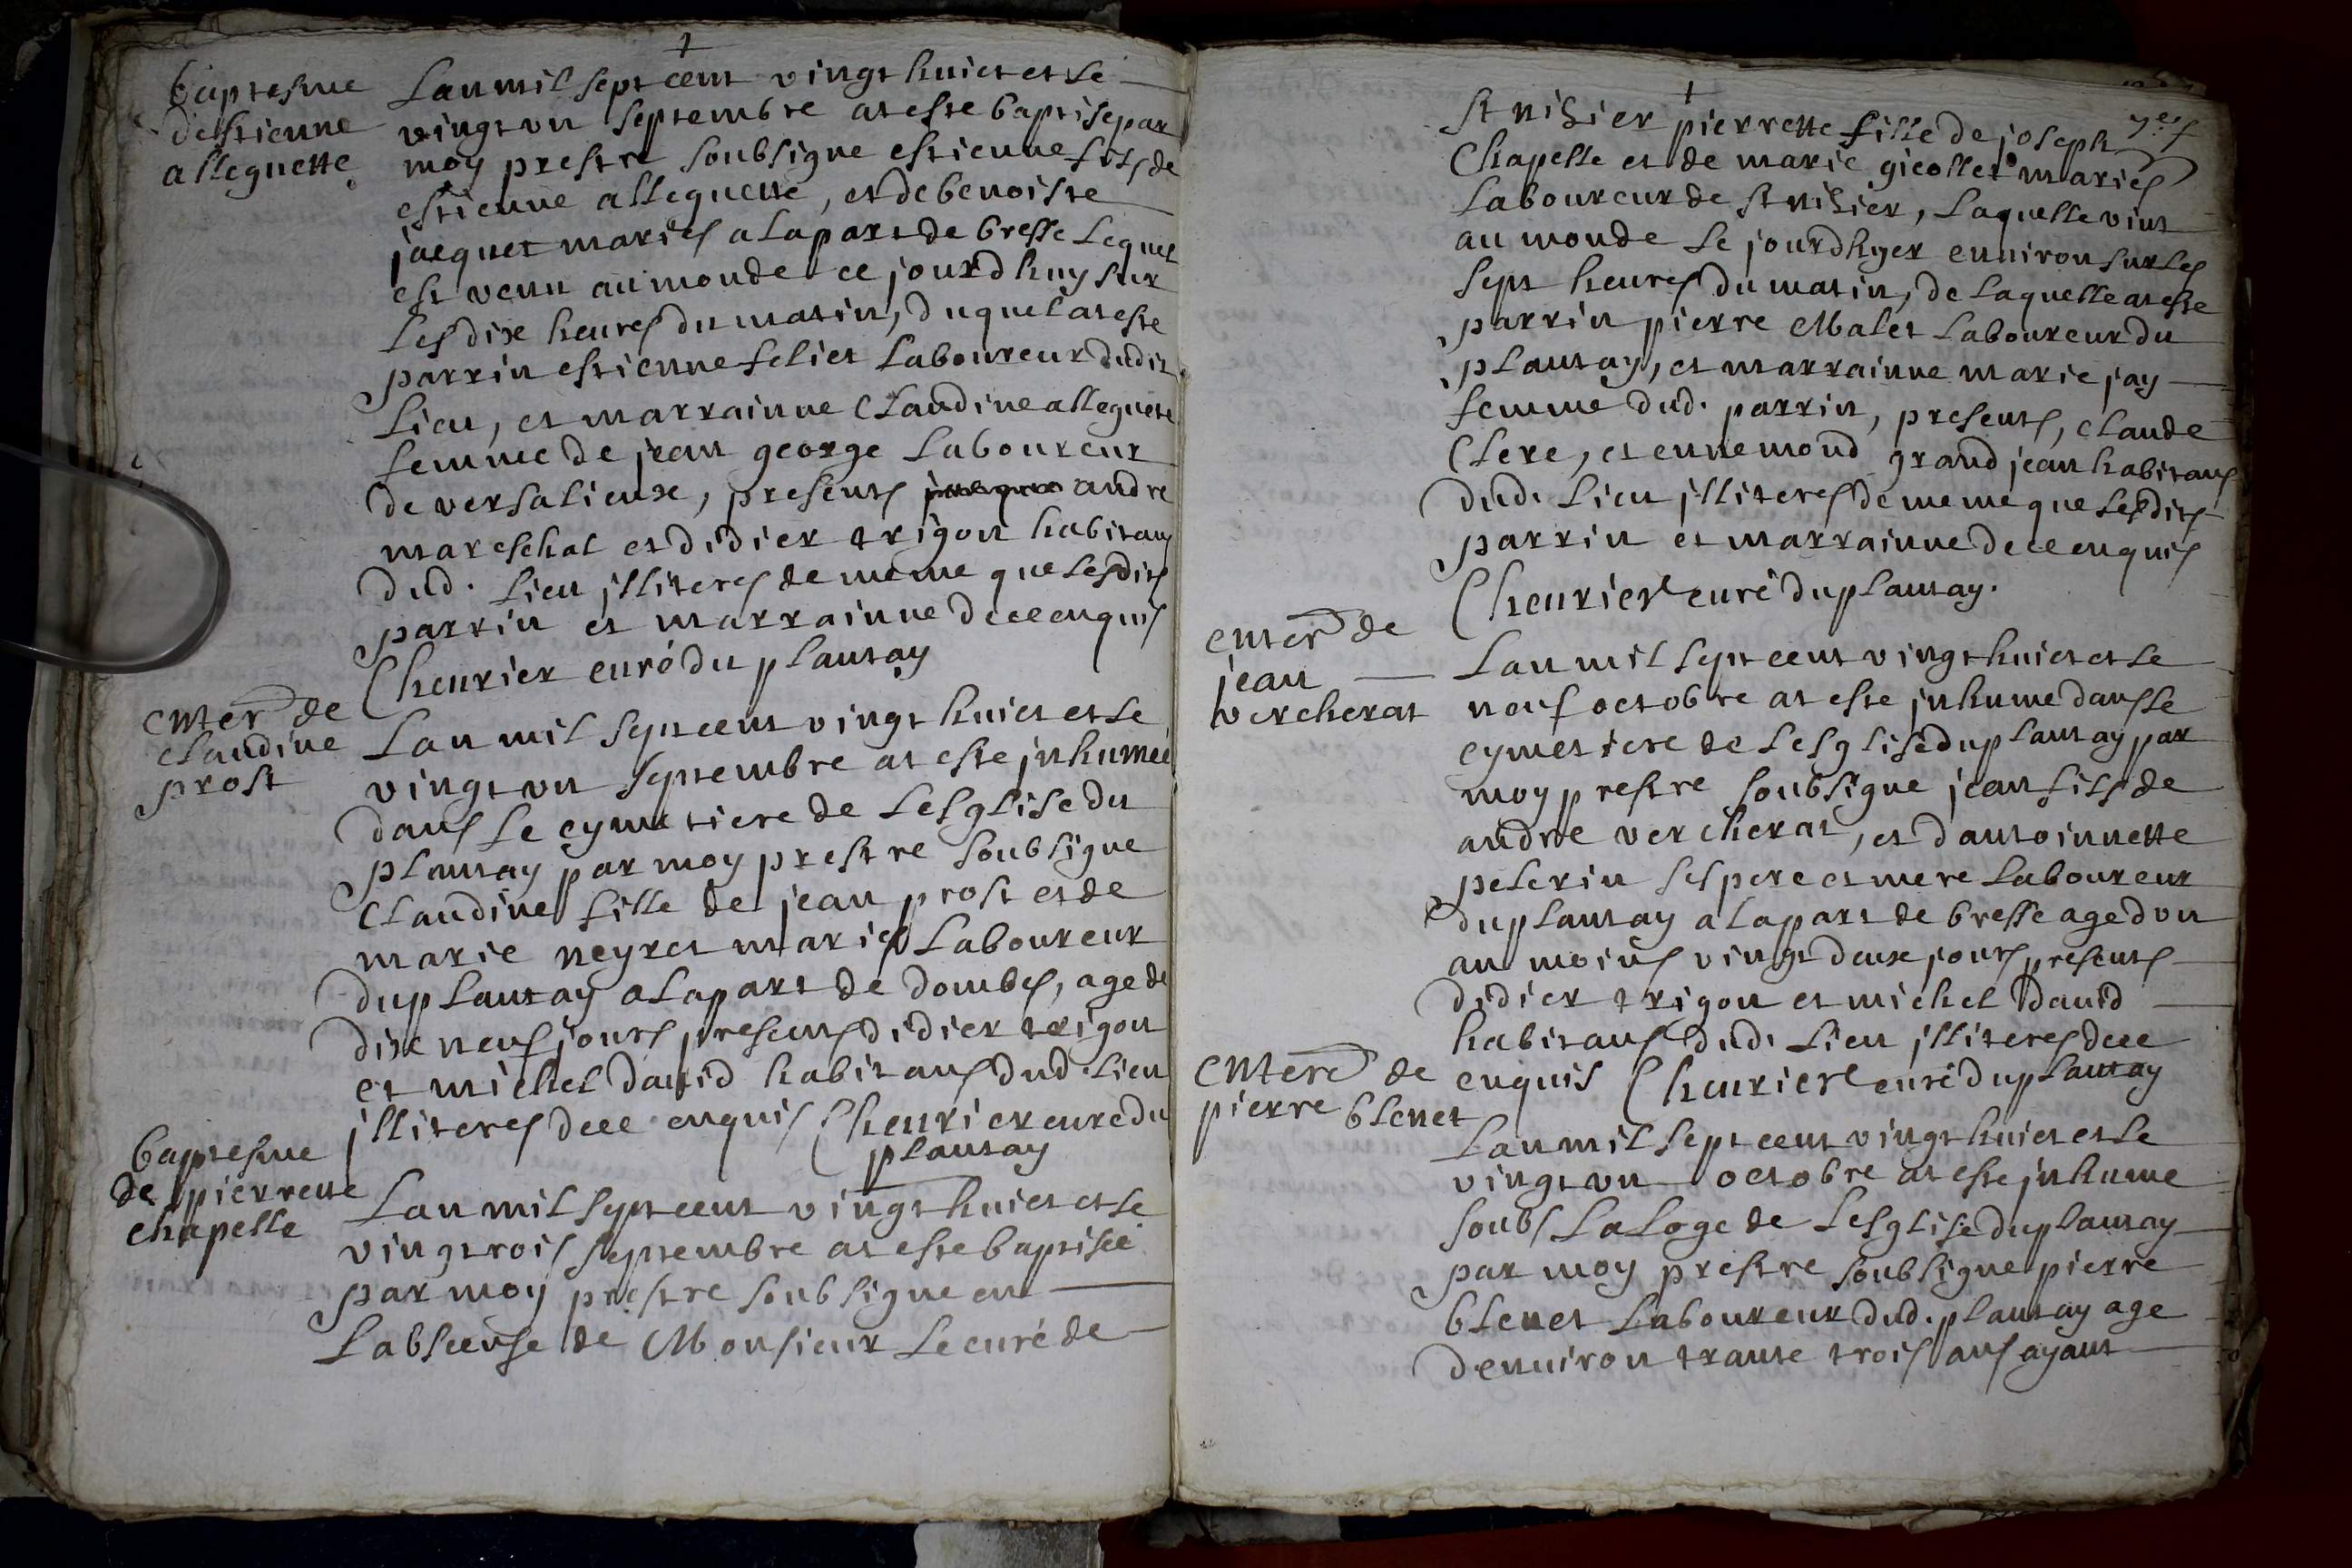 baptesme
destienne
alleguette
Lan mil sept cent vingt huict et le
vingt un septembre at este baptise par
moy prestre soubsigne estienne fils de
estienne alleguette, et de benoiste
jacquet mariés a la part de bresse lequel
est venu au monde ce jourd huy sur
les dix heures du matin, duquel at este
parrin estienne feliet laboureur dudit
lieu, et marrainne Claudine alleguete
femme de jean george laboureur
de versalieux, presents andre
mareschal et didier trigon habitans
dud. lieu jlliteres de meme que lesdits
parrin et marrainne de ce enquis
Cheurier curé du plantay
enter de
claudine
prost
Lan mil sept cent vingt huict et le
vingt un septembre at este jnhumée
dans le cymetiere de lesglise du
plantay par moy prestre soubsigne
Claudine fille de jean prost et de
marie neyret mariés laboureur
du plantay a la part de dombes, age de
dix neuf jours presens didier trigon
et michel david habitans dud. lieu
jlliteres de ce enquis Cheurier curé du
plantay
baptesme
de pierrette
chapelle
Lan mil sept cent vingt huict et le
vingtrois septembre at este baptisée
par moy prestre soubsigne en
labscense de Monsieur le curé de
st nisier pierrette fille de joseph
Chapelle et de marie gicollet mariés
laboureur de st nisier, laquelle vint
au monde le jourdhyer environ sur les
sept heures du matin, de laquelle at este
parrin pierre Malet laboureur du
plantay, et marrainne marie jay
femme dud. parrin, presents, claude
Clere, et ennemond grand jean habitans
dud. lieu jlliteres de meme que lesdits
parrin et marrainne de ce enquis
Cheurier curé du plantay.
enter de
jean
vercherat
Lan mil sept cent vingt huict et le
neuf octobre at este jnhume dans le
cymetiere de lesglise du plantay par
moy prestre soubsigne jean fils de
andre vercherat, et dantoinnette
pelerin ses pere et mere laboureur
du plantay a la part de bresse age dun
an moins vingt deux jours presents
didier trigon et michel David
habitans dud. lieu jlliteres de ce
enquis Cheurier curé du plantay
entere de
pierre blenet
Lan mil sept cent vingt huict et le
vingt un octobre at este jnhume
soubs la loge de lesglise du plantay
par moy prestre soubsigne pierre
blenet laboureur dud. plantay age
denuiron trante trois ans ayant